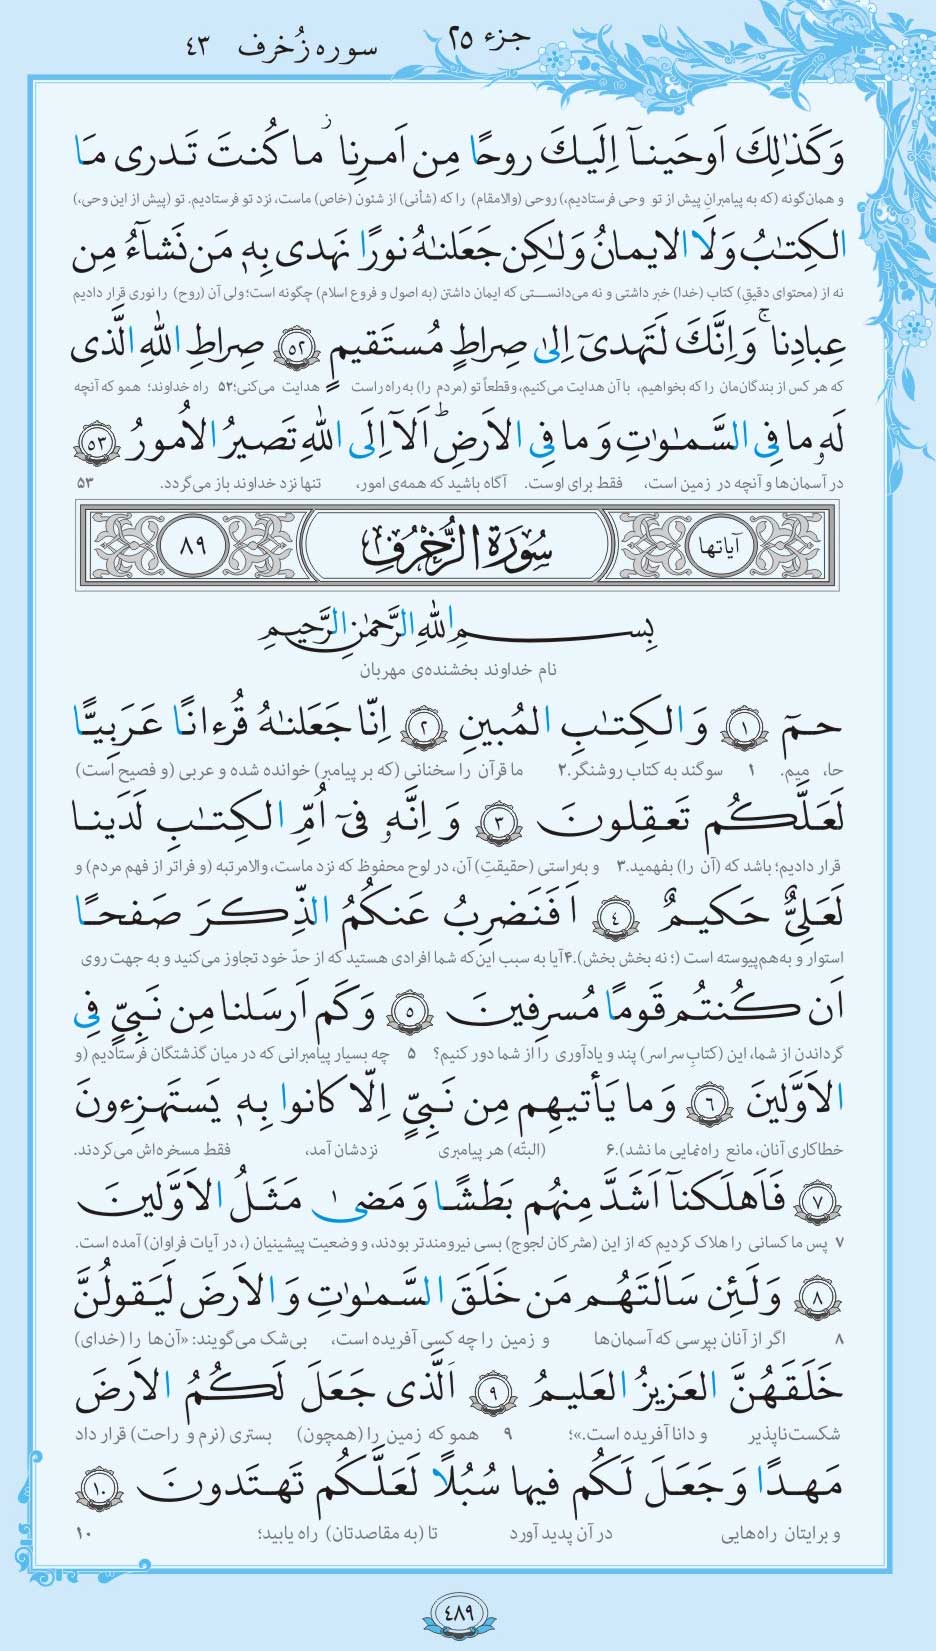 جزء ۲۵ سوره زُخرف ۴۳
وَ کَذٰلِكَ اَوحَینآ اِلَیـكَ روحًا مِن اَمـرِنا ۚ ما کُنتَ تَـدری مَا
و همان‌گونه (که به پیامبرانِ پیش از تو وحی فرستادیم،) روحی (والامقام) را که (شأنی) از شئون (خاص) ماست، نزد تو فرستادیم. تو (پیش از این وحی،)
الـکِتٰبُ وَ لَا الایمانُ وَ لٰـکِن جَعَلنٰهُ نورًا نَهدی بِهٖ مَن نَشآءُ مِن
نه از (محتوای دقیقِ) کتاب (خدا) خبر داشتی و نه می‌دانستی که ایمان داشتن (به اصول و فروع اسلام) چگونه است؛ ولی آن (روح) را نوری قرار دادیم
عِبادِنا ۚ وَ اِنَّكَ لَتَهدیٓ اِلیٰ صِراطٍ مُستَقیمٍ ۵۲ صِراطِ اللّٰهِ الَّذی
که هر کس از بندگان‌مان را که بخواهیم، با آن هدایت می‌کنیم، و قطعاً تو (مردم را) به راه راست هدایت می‌کنی؛۵۲ راه خداوند؛ همو که آنچه
لَهٗ ما فِی السَّمـٰوٰتِ وَ ما فِی الاَرضِ ۗ اَلاۤ اِلَی اللّٰهِ تَصیرُ الاُمورُ ۵۳
در آسمان‌ها و آنچه در زمین است، فقط برای اوست. آگاه باشید که همه‌ی امور، تنها نزد خداوند باز می‌گردد. ۵۳
آیاتها سُورَةُ الزُّخْرُفِ ۸۹
بِسـمِ اللّٰهِ الرَّحمٰنِ الرَّحیـمِ
نام خداوند بخشنده‌ی مهربان
حـمٓ ۱ وَ الـکِتـٰبِ المُبینِ ۲ اِنّا جَعَلنٰهُ قُرءانًا عَرَبِیًّا
حا، میم. ۱ سوگند به کتاب روشنگر.۲ ما قرآن را سخنانی (که بر پیامبر) خوانده شده و عربی (و فصیح است)
لَعَلَّـکُم تَعقِلونَ ۳ وَ اِنَّهٗ فیٓ اُمِّ الـکِتـٰبِ لَدَینا
قرار دادیم؛ باشد که (آن را) بفهمید.۳ و به‌راستی (حقیقتِ) آن، در لوح محفوظ که نزد ماست، والامرتبه (و فراتر از فهم مردم) و
لَعَلِیٌّ حَکیـمٌ ۴ اَ فَنَضرِبُ عَنکُمُ الذِّکرَ صَفحًا
استوار و به‌هم‌پیوسته است (؛ نه بخش بخش).۴آیا به سبب این‌که شما افرادی هستید که از حدّ خود تجاوز می‌کنید و به جهت روی
اَن کُنتُم قَومًا مُسرِفینَ ۵ وَ کَم اَرسَلنا مِن نَبِیٍّ فِی
گرداندن از شما، این (کتابِ سراسر) پند و یادآوری را از شما دور کنیم؟ ۵ چه بسیار پیامبرانی که در میان گذشتگان فرستادیم (و
الاَوَّلینَ ۶ وَ ما یَأتیهِم مِن نَبِیٍّ اِلّا کانوا بِهٖ یَستَهزِءونَ
خطاکاری آنان، مانع راه‌نمایی ما نشد).۶ (البتّه) هر پیامبری نزدشان آمد، فقط مسخره‌اش می‌کردند.
۷ فَاَهلَکنآ اَشَدَّ مِنهُم بَطشًا وَ مَضیٰ مَثَلُ الاَوَّلینَ
۷ پس ما کسانی را هلاک کردیم که از این (مشرکان لجوج) بسی نیرومندتر بودند، و وضعیت پیشینیان (، در آیات فراوان) آمده است.
۸ وَ لَئِن سَاَلتَهُم مَن خَلَقَ السَّمـٰوٰتِ وَ الاَرضَ لَیَقولُنَّ
۸ اگر از آنان بپرسی که آسمان‌ها و زمین را چه کسی آفریده است، بی‌شک می‌گویند: «آن‌ها را (خدای)
خَلَقَهُنَّ العَزیزُ العَلیمُ ۹ اَلَّذی جَعَلَ لَـکُمُ الاَرضَ
شکست‌ناپذیر و دانا آفریده است.»؛ ۹ همو که زمین را (همچون) بستری (نرم و راحت) قرار داد
مَهدًا وَ جَعَلَ لَـکُم فیها سُبُلًا لَعَلَّـکُم تَهتَدونَ ۱۰
و برایتان راه‌هایی در آن پدید آورد تا (به مقاصدتان) راه یابید؛ ۱۰
۴۸۹